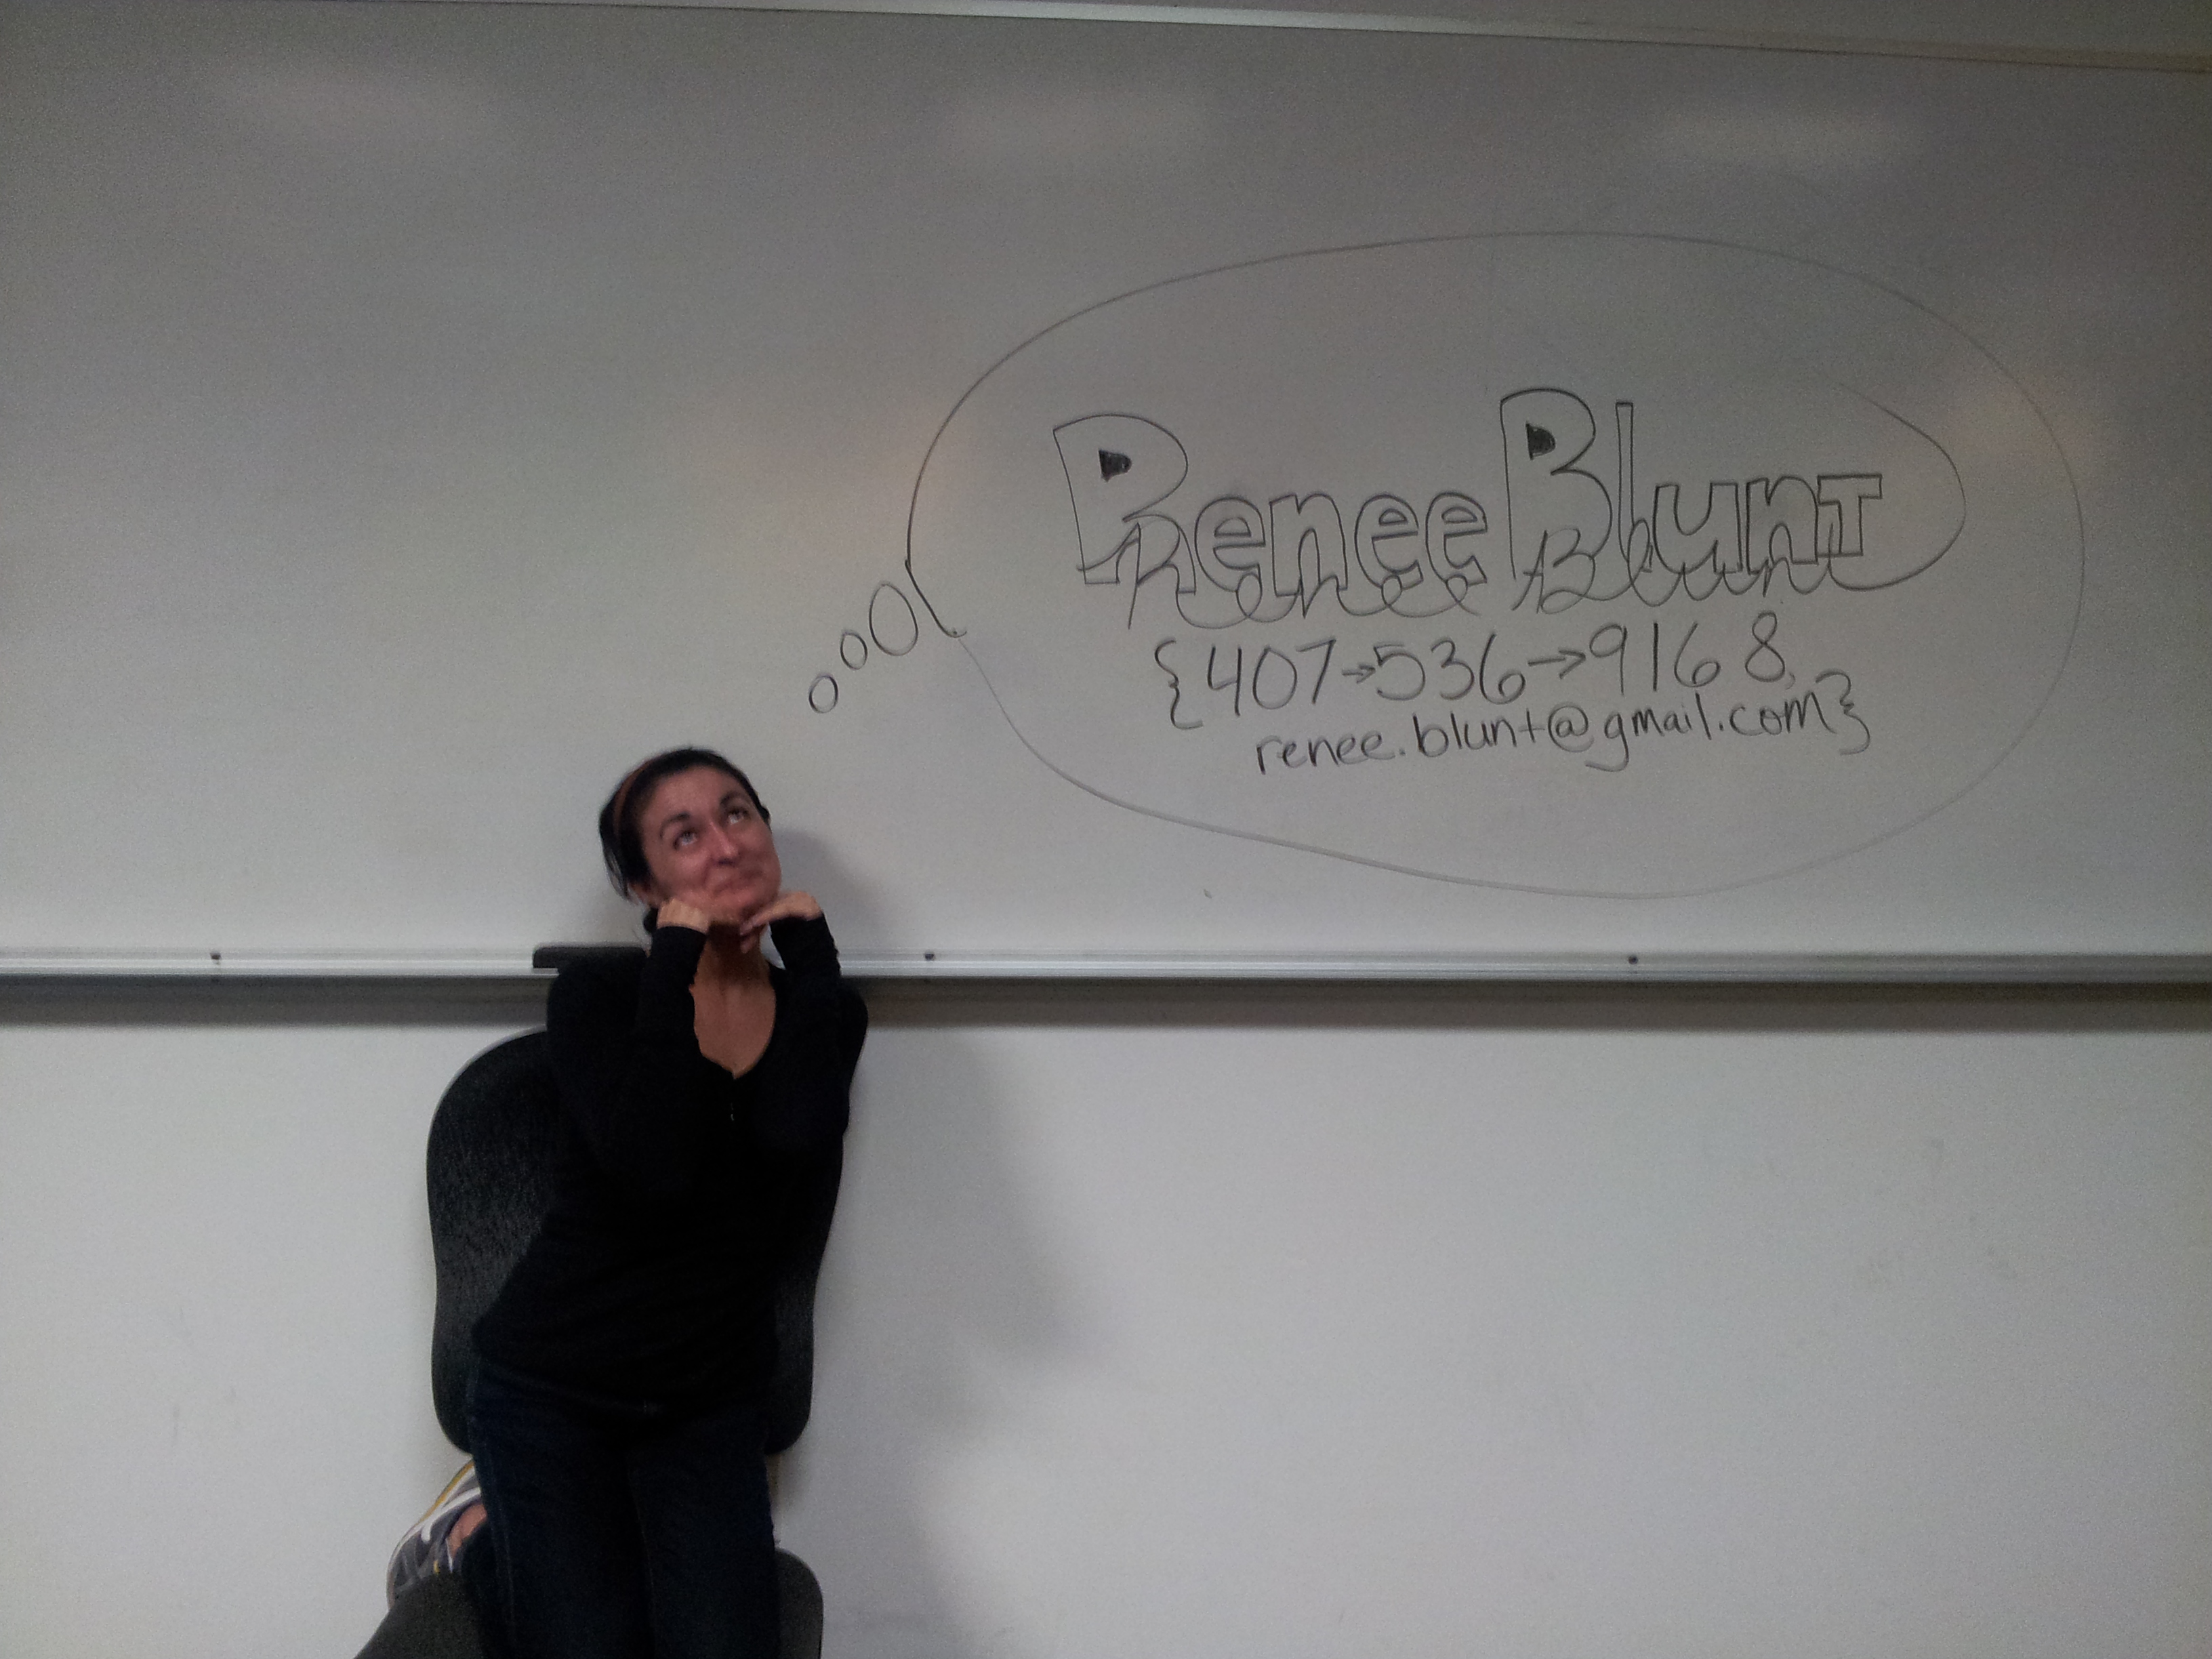 Renee Blunt
Renee Blunt
{407→536→9168,
renee.blunt@gmail.com}